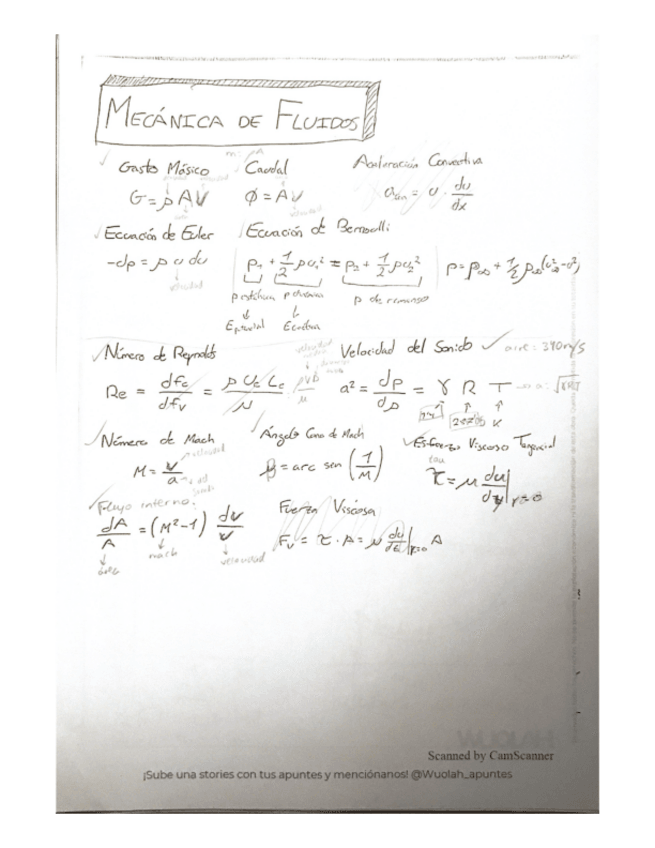 MECÁNICA DE FLUIDOS
Gasto Másico
G = ρ A V
Caudal
Φ = A V
velocidad
Aceleración Convectiva
a = u · du/dx
Ecuación de Euler
-dp = ρ u du
velocidad
Ecuación de Bernoulli
p₁ + 1/2 ρ u₁² = p₂ + 1/2 ρ u₂²
p estática p dinámica p de remanso
p = p∞ + 1/2 ρ∞ (u∞² - u²)
Número de Reynolds
Re = dfc/dfv = ρ Uc Lc / μ
ρVD/μ
Velocidad del Sonido ✓ aire: 340 m/s
a² = dp/dρ = γ R T → a: √γRT
K
Número de Mach
M = v/a
velocidad
Ángulo Cono de Mach
β = arc sen (1/M)
Esfuerzo Viscoso Tangencial
tau
τ = μ du/dy|y=0
Flujo interno:
dA/A = (M² - 1) dv/v
área
mach
velocidad
Fuerza Viscosa
Fv = τ · A = μ du/dy|y=0 A
WUOLAH
Scanned by CamScanner
¡Sube una stories con tus apuntes y menciónanos! @Wuolah_apuntes